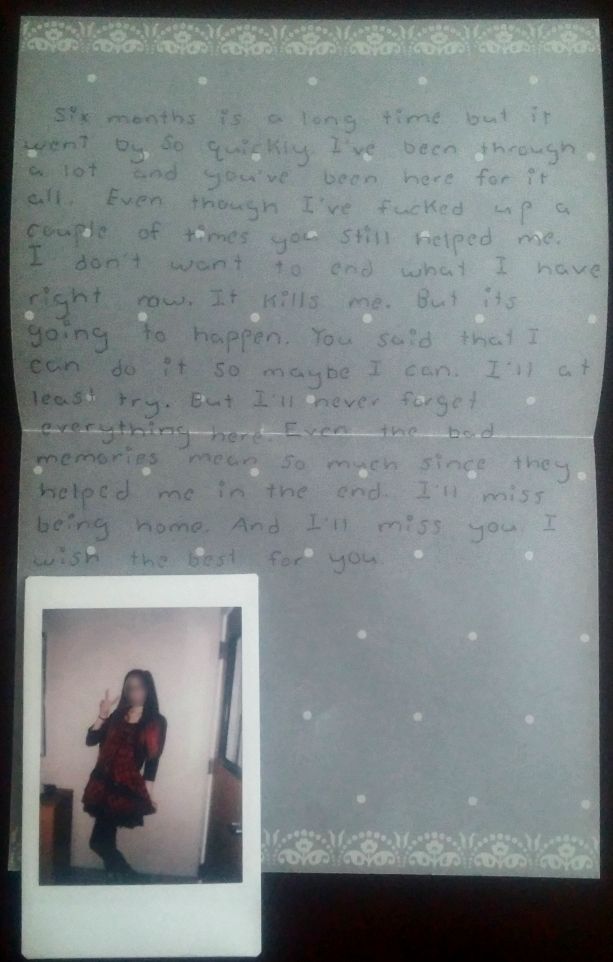 Six months is a long time but it
went by so quickly I've been through
a lot and you've been here for it
all. Even though I've fucked up a
couple of times you still helped me.
I don't want to end what I have
right now. It kills me. But its
going to happen. You said that I
can do it so maybe I can. I'll at
least try. But I'll never forget
everything here. Even the bad
memories mean so much since they
helped me in the end. I'll miss
being home. And I'll miss you. I
wish the best for you.